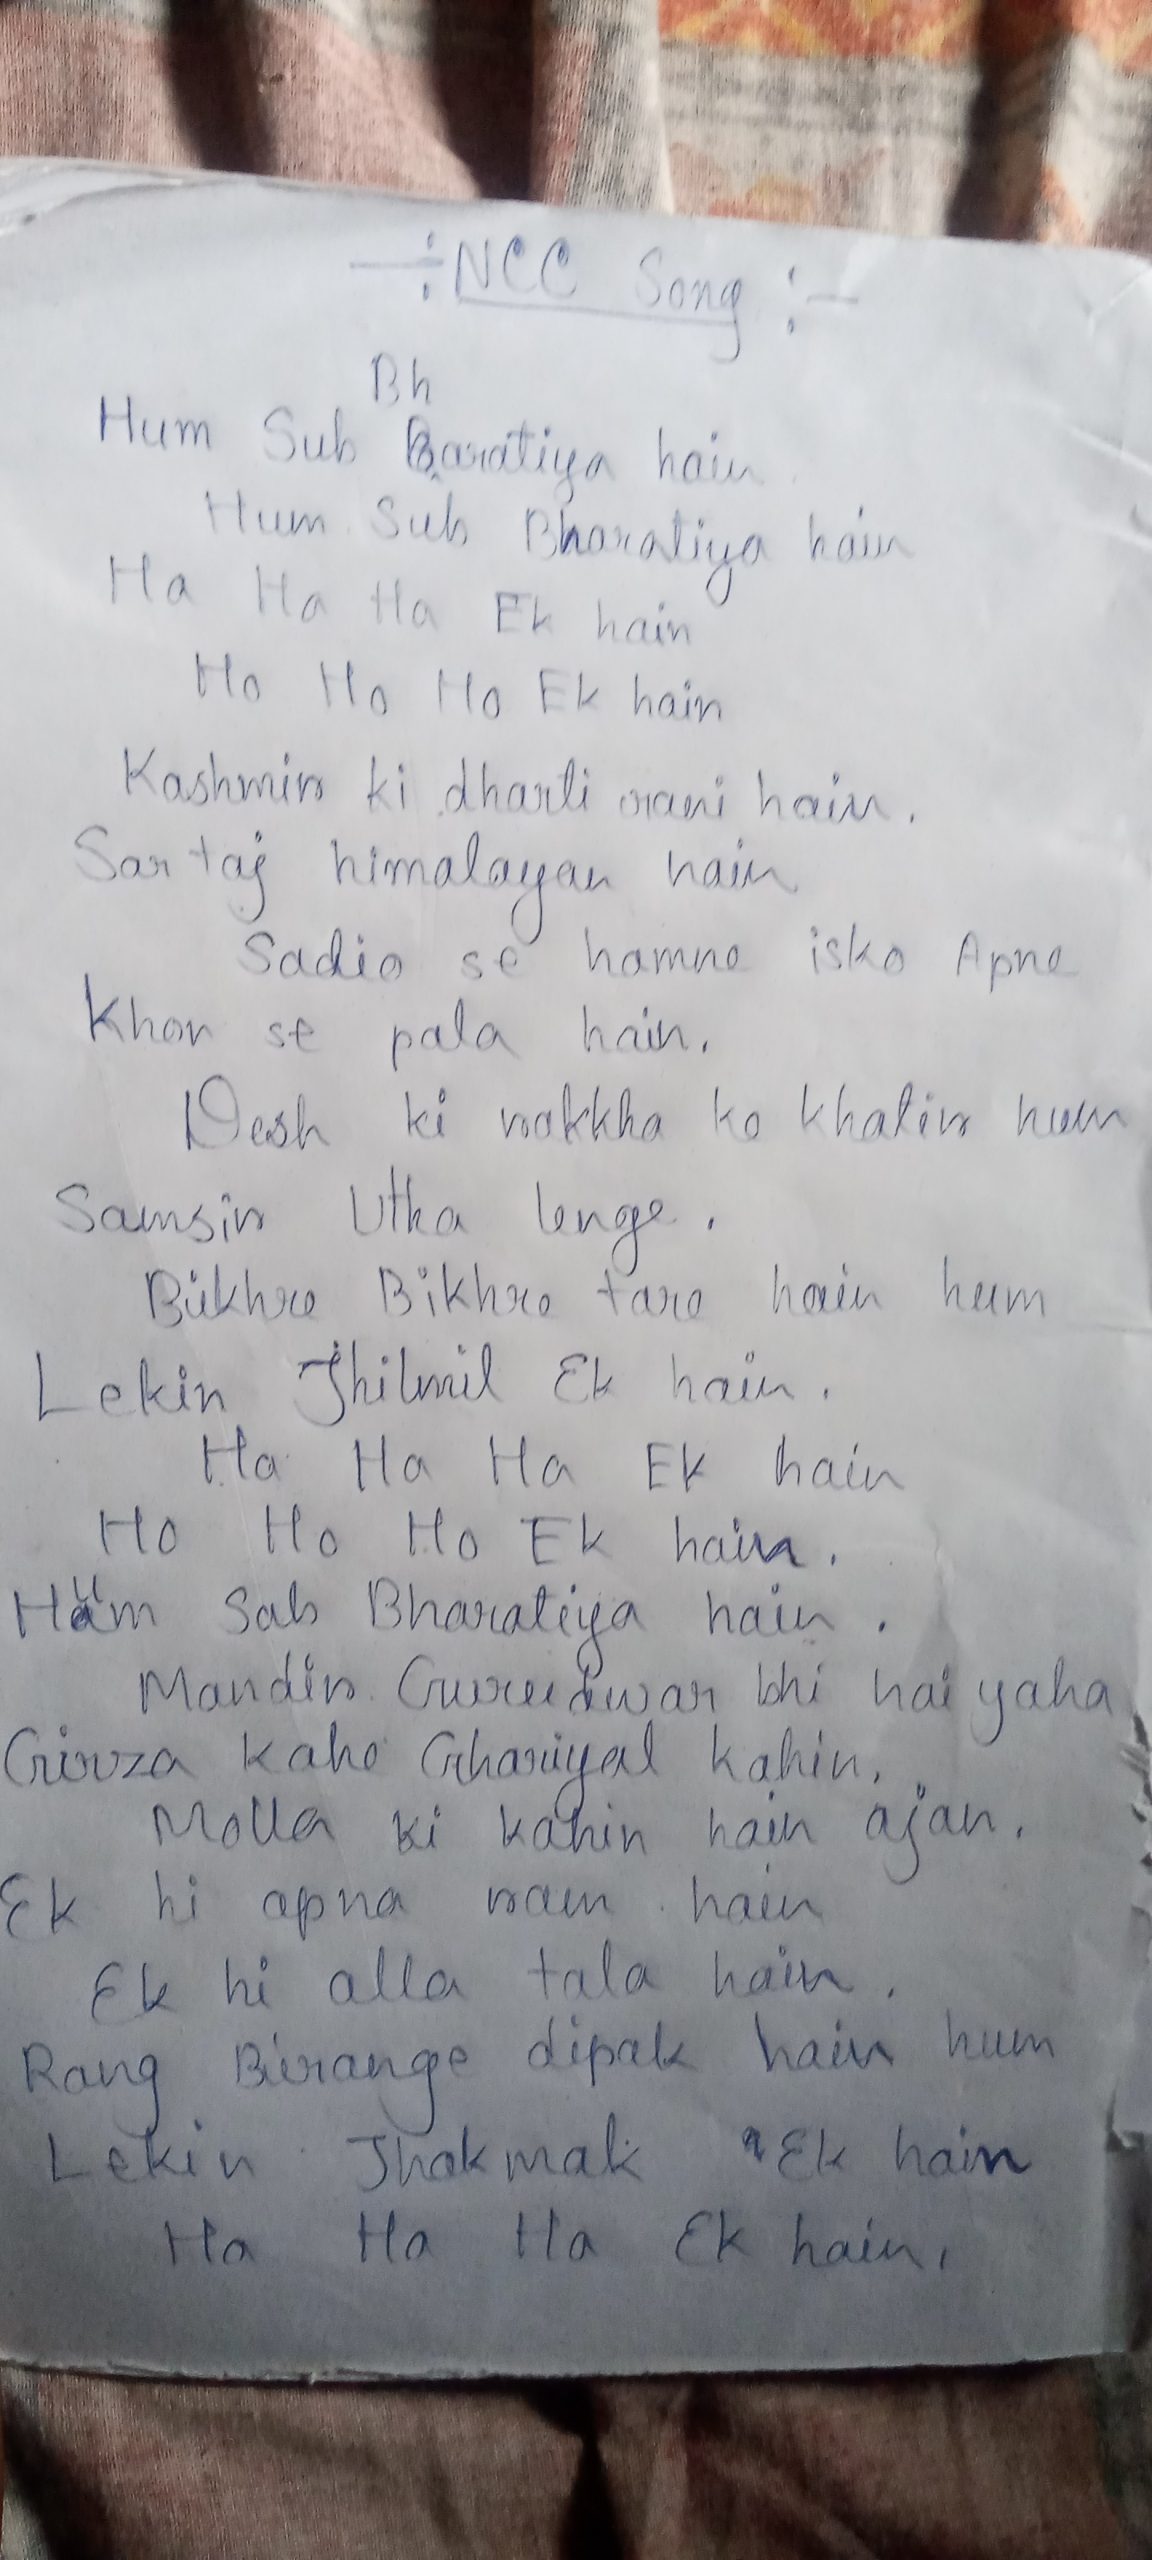 -:NCC Song:-
Bh
Hum Sub Baratiya hain
Hum Sub Bharatiya hain
Ha Ha Ha Ek hain
Ho Ho Ho Ek hain
Kashmir ki dharti rani hain.
Sartaj himalayan hain
Sadio se hamne isko Apne
Khon se pala hain.
Desh ki rakkha ke khatir hum
Samsir Utha lenge.
Bikhre Bikhre tare hain hum
Lekin Jhilmil Ek hain.
Ha Ha Ha Ek hain
Ho Ho Ho Ek hain.
Hum Sab Bharatiya hain.
Mandir Gurudwar bhi hai yaha
Girza kahe Ghariyal kahin.
Molla ki kahin hain ajan.
Ek hi apna ram hain
Ek hi alla tala hain.
Rang Birange dipak hain hum
Lekin Jhakmak Ek hain
Ha Ha Ha Ek hain.